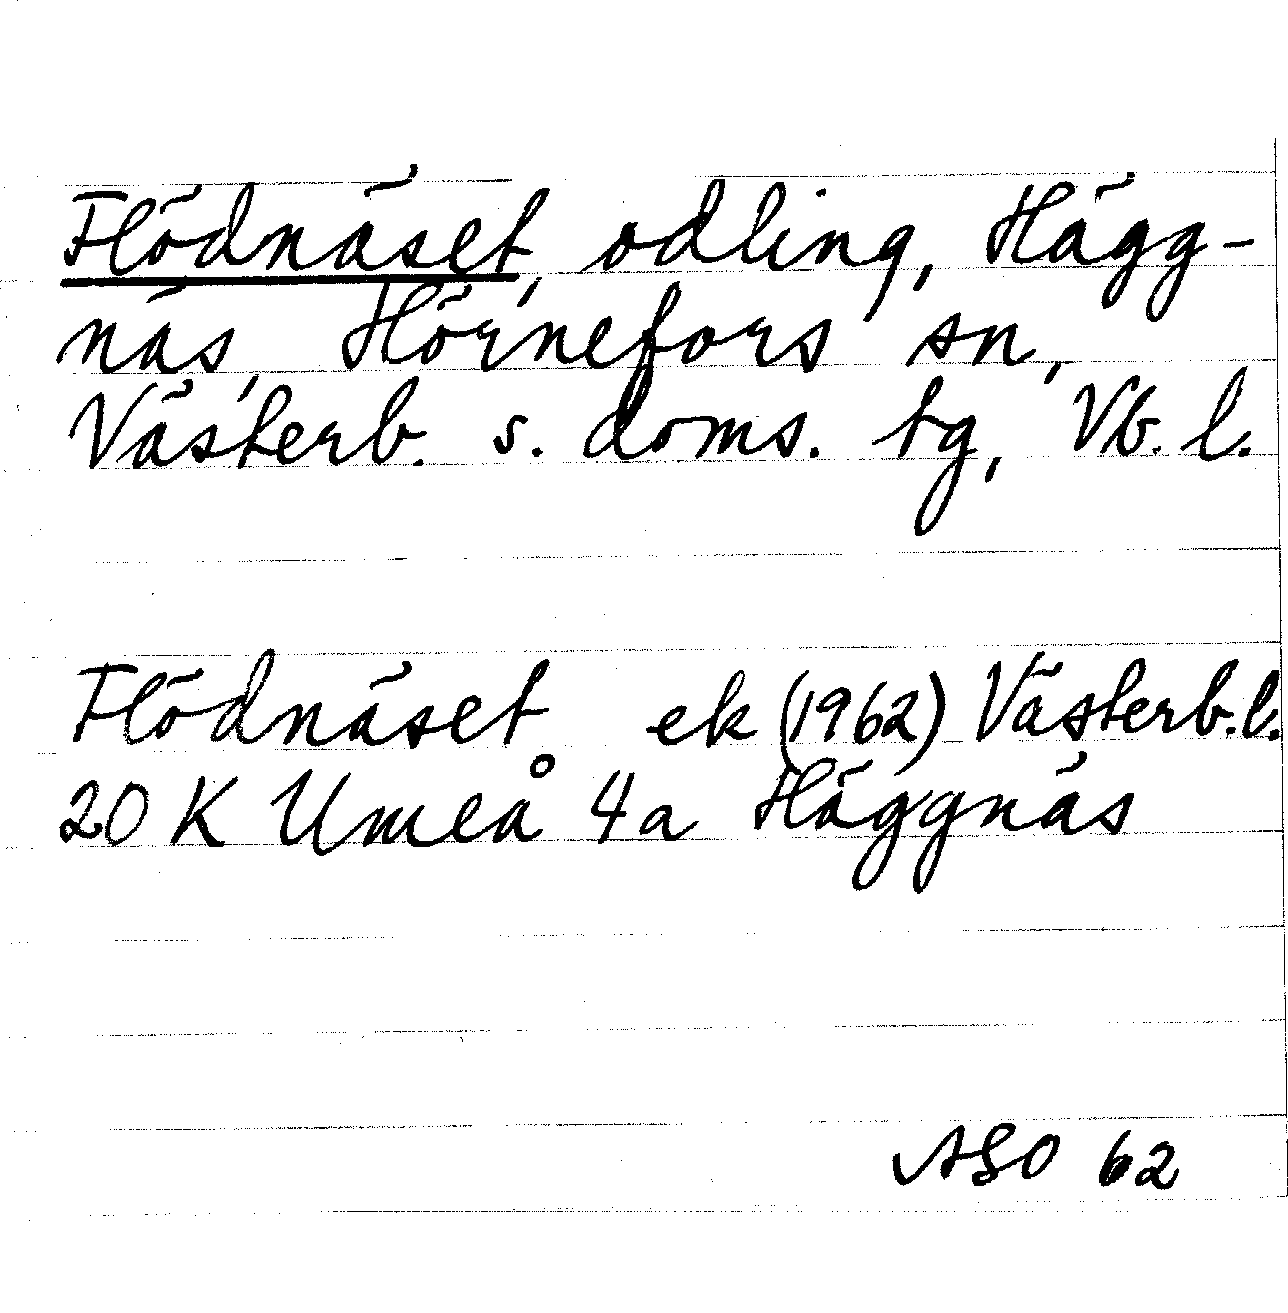 Flödnäset, odling, Hägg-
näs, Hörnefors sn,
Västerb. s. doms. tg, Vb. l.
Flödnäset ek (1962) Västerb.l.
20 K Umeå 4a Häggnäs
ASO 62